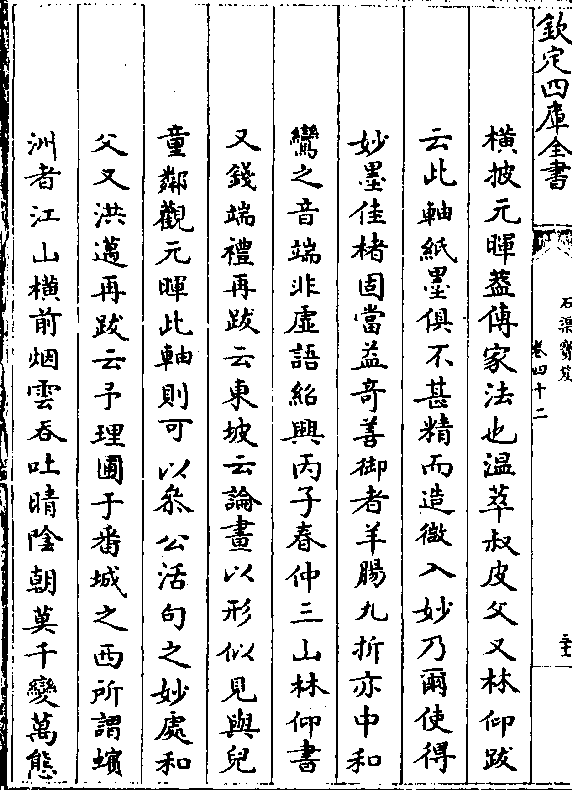 欽定四庫全書
石渠寶笈
卷四十二
橫披元暉葢傳家法也溫萃叔皮父又林仰跋
云此軸紙墨俱不甚精而造微入妙乃爾使得
妙墨佳楮固當益奇善御者羊腸九折亦中和
鸞之音端非虛語紹興丙子春仲三山林仰書
又錢端禮再跋云東坡云論畫以形似見與兒
童鄰觀元暉此軸則可以叅公活句之妙處和
父又洪邁再跋云予理圃于番城之西所謂蠙
洲者江山橫前烟雲吞吐晴陰朝莫千變萬態